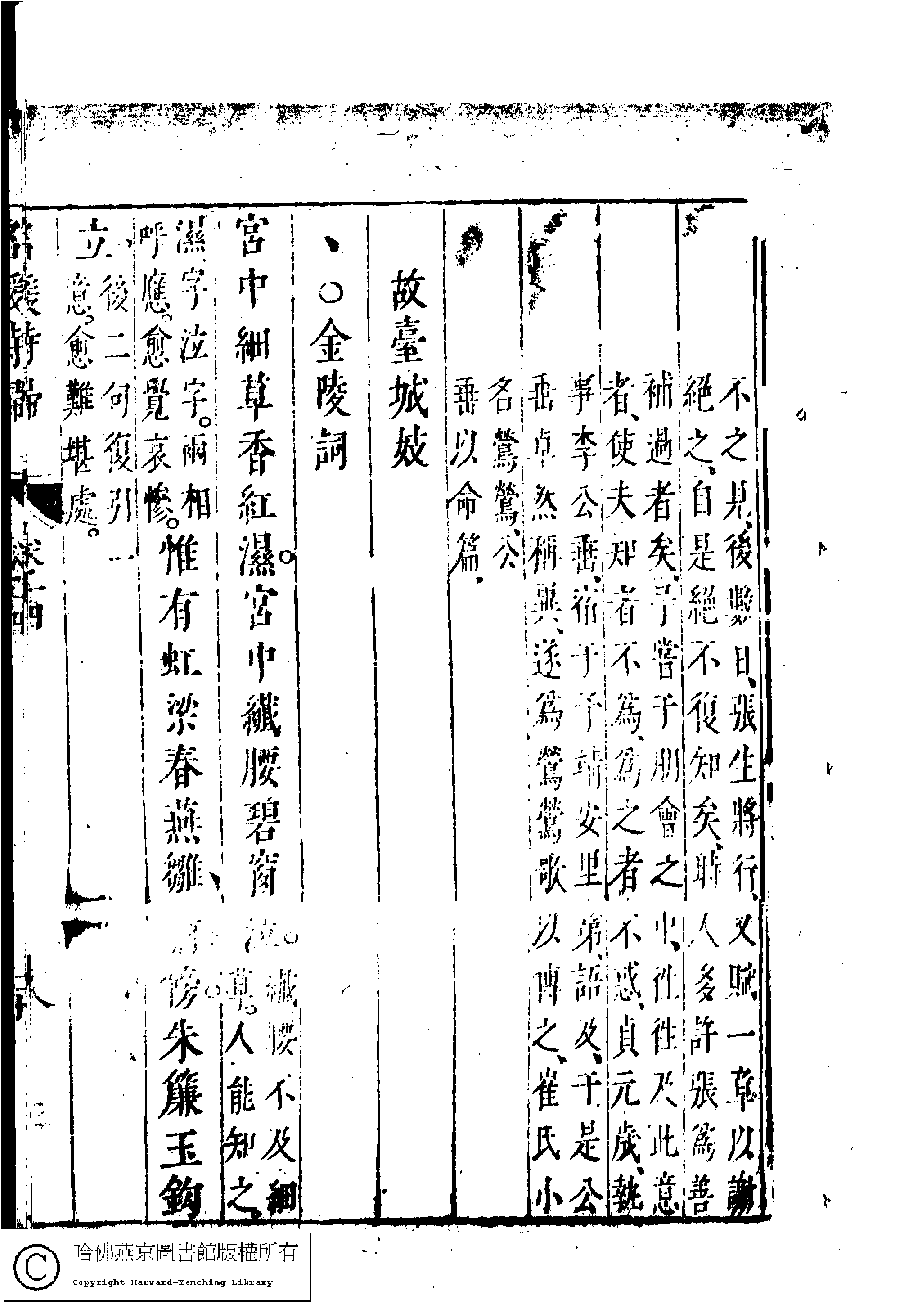 不之見後數日、張生將行、又賦一章以謝
絕之、自是絕不復知矣、時人多許張爲善
補過者矣、予嘗于朋會之中、往往及此意
者、使夫知者不爲、爲之者不惑、貞元歲、執
事李公垂、宿于予靖安里第、語及、于是公
垂卓然稱異、遂爲鶯鶯歌以傳之、崔氏小
名鶯鶯、公
垂以命篇、
故臺城妓
、○金陵詞
宮中細草香紅濕。宮中纖腰碧窗泣。
纖腰不及細
草。人能知之、
濕字泣字。兩相
呼應。愈覺哀慘。
惟有虹梁春燕雛
傍朱簾玉鈎
立
後二句復引一
意。愈難堪處。
名媛詩歸
卷十四
八
哈佛燕京圖書館版權所有
Copyright Harvard-Yenching Library